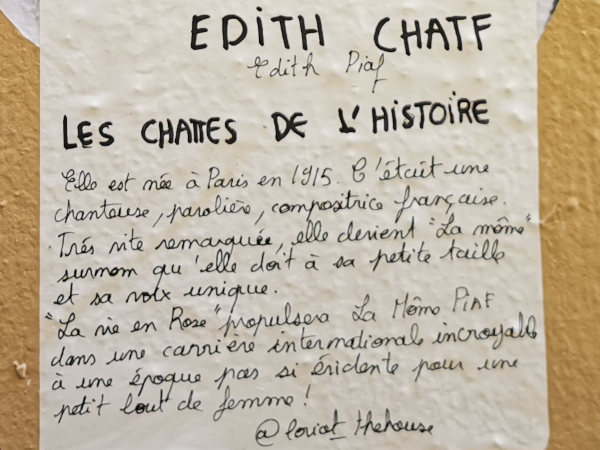 EDITH CHATF
Edith Piaf
LES CHATTES DE L'HISTOIRE
Elle est née à Paris en 1915. C'était une
chanteuse, parolière, compositrice française.
Très vite remarquée, elle devient "La môme"
surnom qu'elle doit à sa petite taille
et sa voix unique.
"La vie en Rose" propulsera La Môme PIAF
dans une carrière internationale incroyable
à une époque pas si évidente pour une
petit bout de femme !
@loriot_thehouse